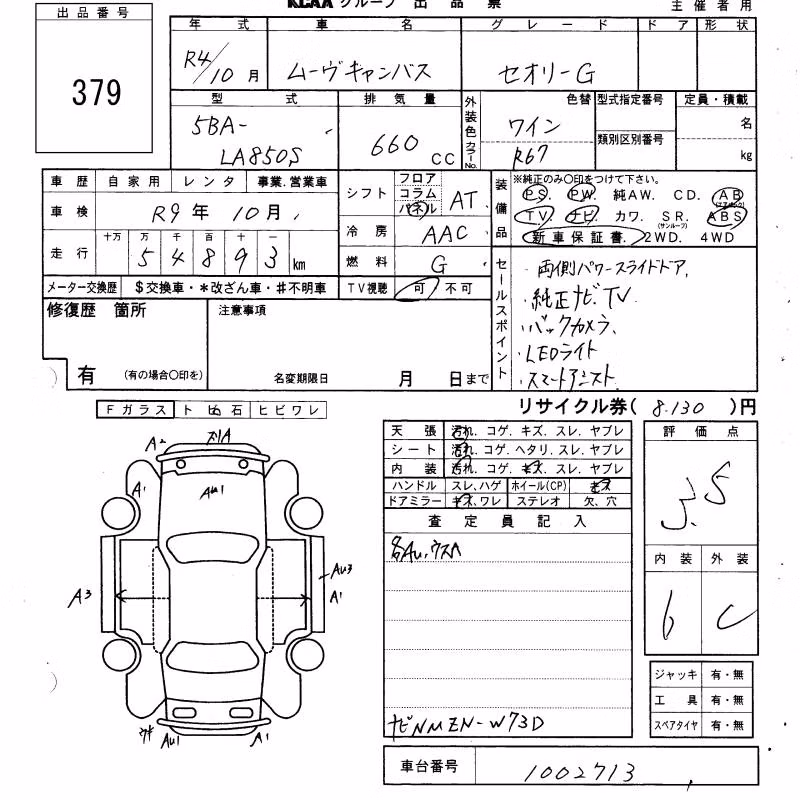 出品番号
379
KCAAグループ 出品票
主催者用
年式 車名 グレード ドア 形状
R4/10月 ムーヴキャンバス セオリーG
型式 排気量 外装色 カラーNo. 色替 型式指定番号 定員・積載
5BA-
LA850S 660 CC
ワイン
R67
類別区別番号
名
kg
車歴 自家用 レンタ 事業.営業車
車検 R9年 10月
走行 十万 万 千 百 十 一
5 4 8 9 3 km
メーター交換歴 $交換車・*改ざん車・#不明車
シフト フロア コラム パネル AT
冷房 AAC
燃料 G
TV視聴 可 不可
装備品
※純正のみ〇印をつけて下さい。
PS. PW. 純AW. CD. AB
(エアバック)
TV ナビ カワ. SR. ABS
(サンルーフ)
新車保証書. 2WD. 4WD
セールスポイント
・両側パワースライドドア,
・純正ナビ.TV
・バックカメラ、
・LEDライト
・スマートアシスト
修復歴 箇所
有 (有の場合〇印を)
注意事項
名変期限日 月 日まで
リサイクル券( 8.130 )円
Fガラス トビ石 ヒビワレ
A2
A1
AU1
A3
AU3
A1
AU1
A1
天張 汚れ、コゲ、キズ、スレ、ヤブレ
シート 汚れ、コゲ、ヘタリ、スレ、ヤブレ
内装 汚れ、コゲ、キズ、スレ、ヤブレ
ハンドル スレ、ハゲ ホイール(CP) キズ
ドアミラー キズ、ワレ ステレオ 欠、穴
査定員記入
各AU,ウスA
ナビNMZN-W73D
評価点
3.5
内装 外装
6 C
ジャッキ 有・無
工具 有・無
スペアタイヤ 有・無
車台番号 1002713